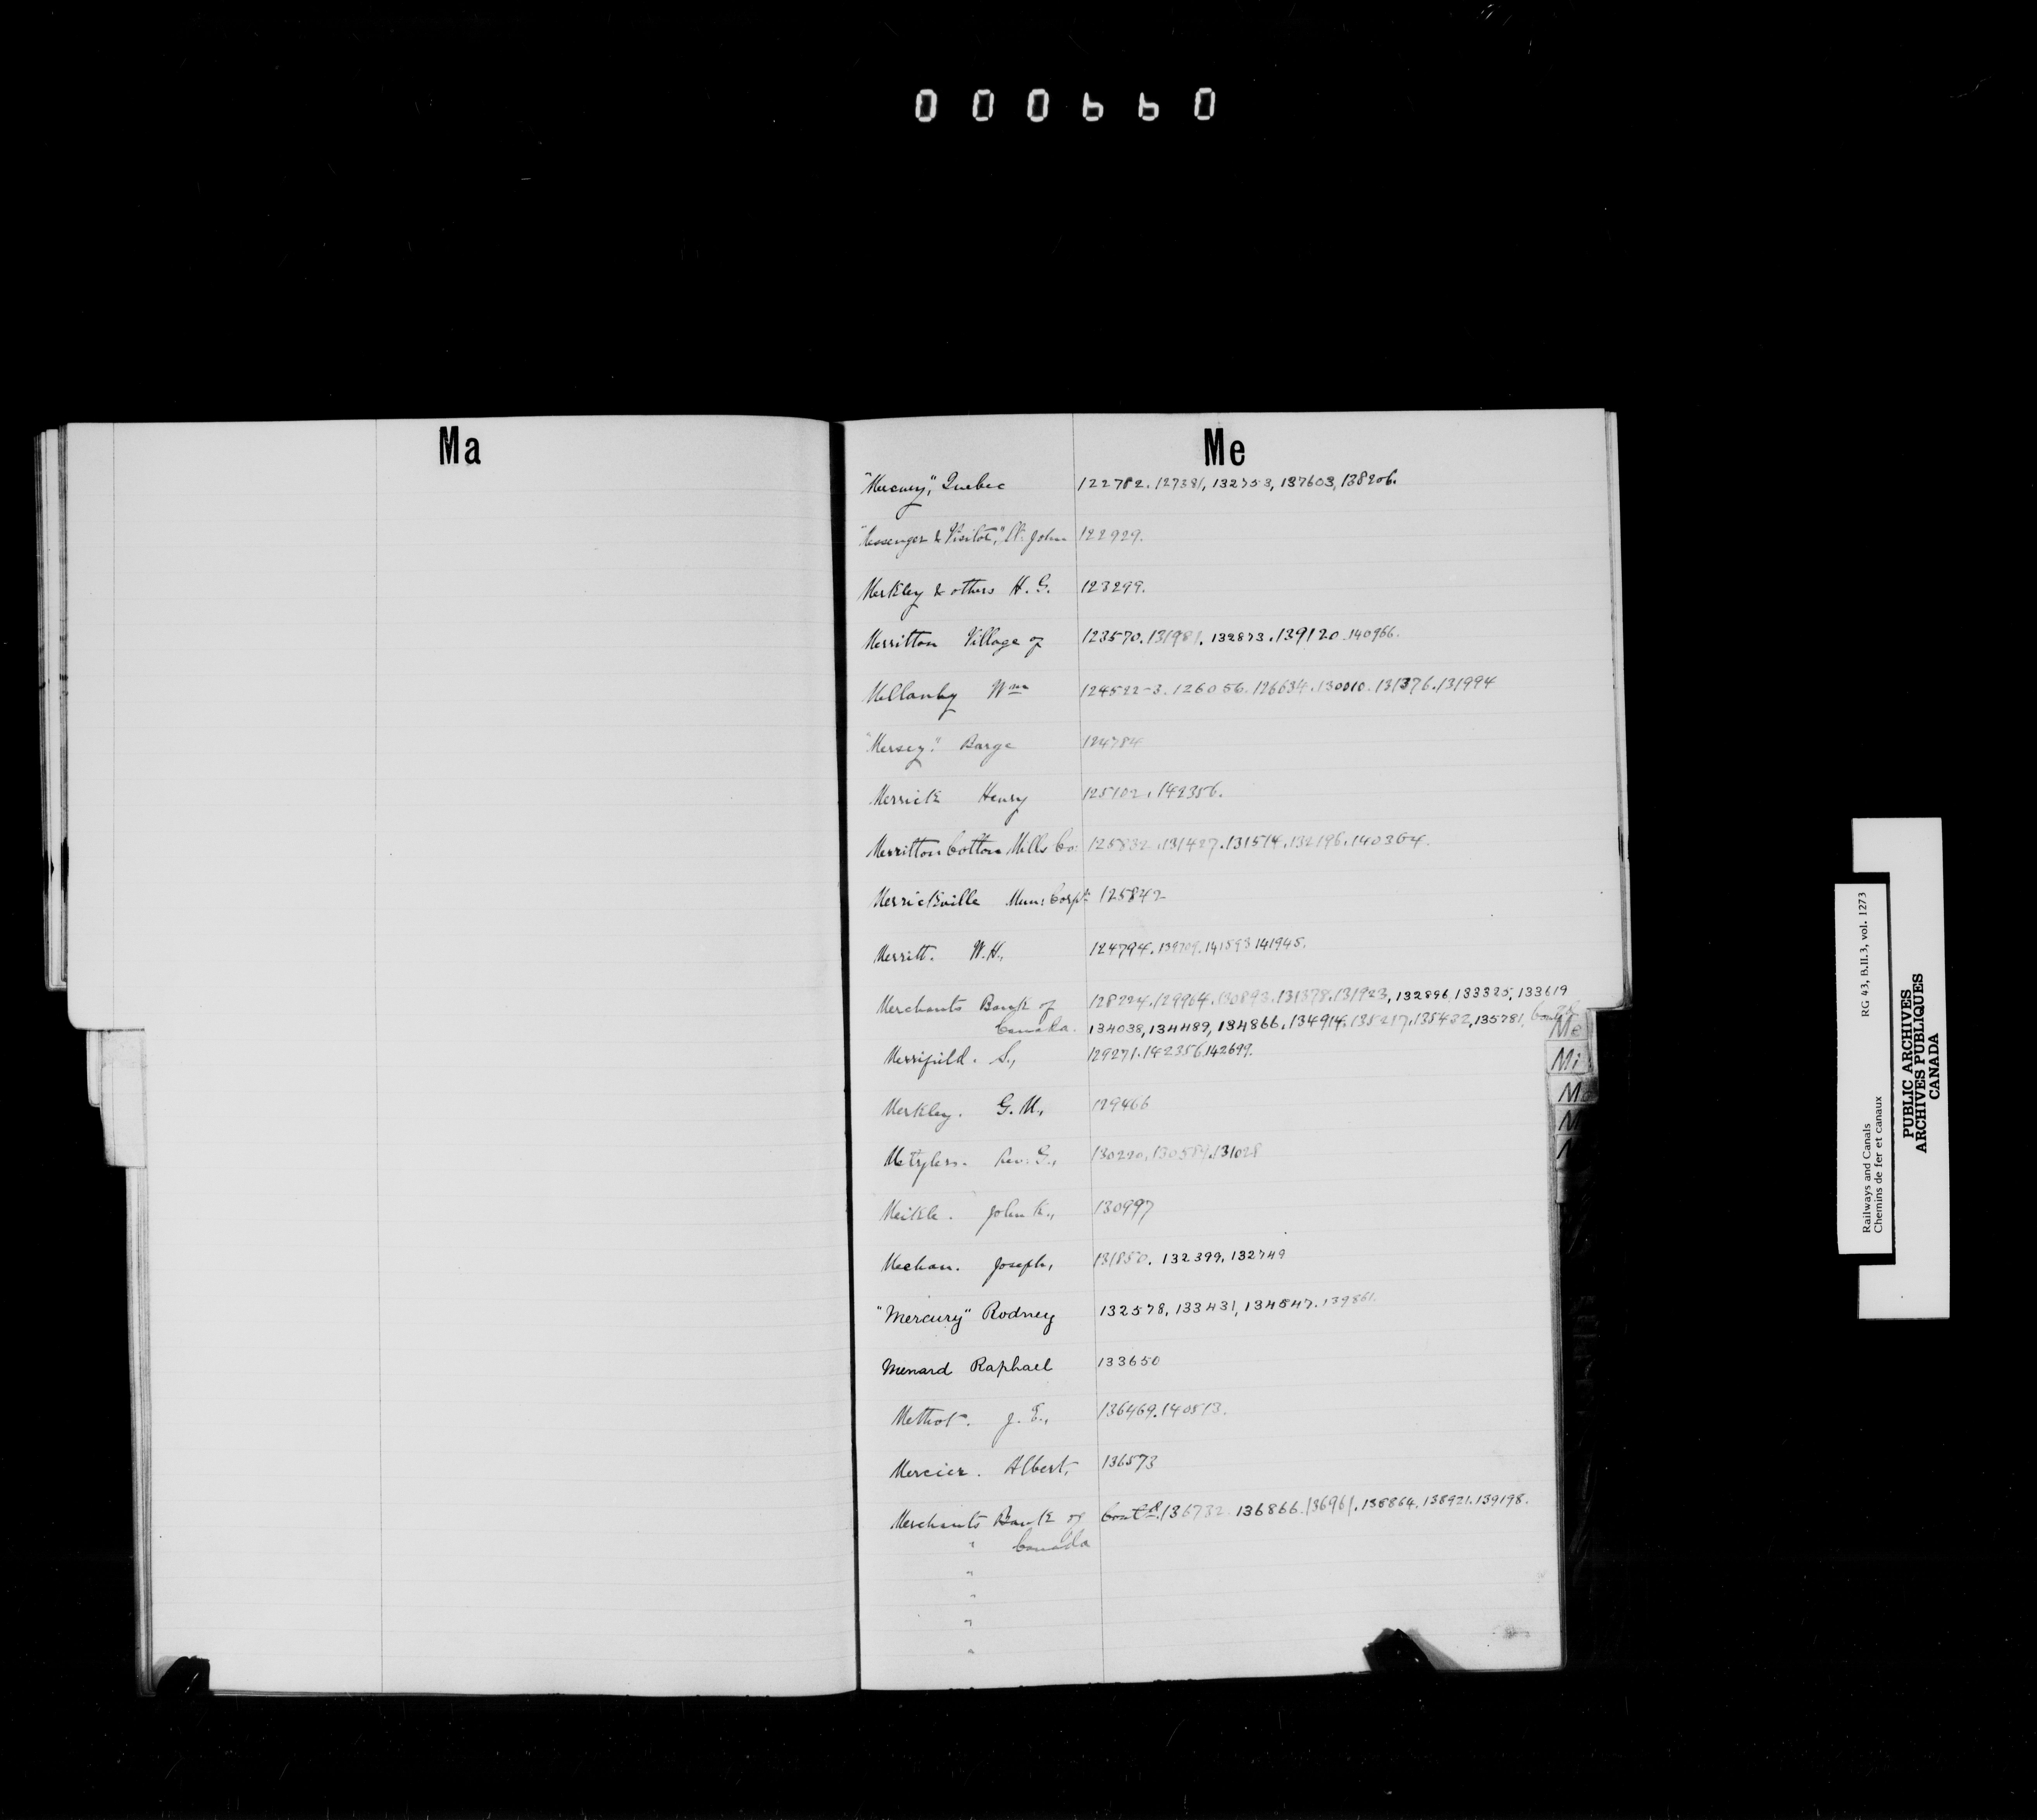 000660
Ma
Me
"Mercury," Quebec 122782. 127381, 132753, 137603, 138206.
"Messenger & Visitor," St. John 122929.
Merkley & others H. G. 123299.
Merritton Village of 123570. 131981. 132873. 139120. 140966.
Mellanby Wm 124522-3. 126056. 126634. 130010. 131376. 131994
"Mersey." Barge 124784
Merrick Henry 125102. 142356.
Merritton Cotton Mills Co: 125832. 131427. 131514. 132196. 140364.
Merrickville Mun: Corpn: 125842
Merritt. W.H., 124794. 139709. 141593 141945.
Merchants Bank of 128224. 129964. 130893. 131378. 131923, 132896, 133325, 133619
Canada. 134038, 134489, 134866. 134914. 135217. 135432, 135781,
Merrifield. S., 129271. 142356. 142699.
Merkley. G. M., 129466
Rev. G., 130220. 130589. 131028
Meikle. John K., 130997
Meehan. Joseph, 131850. 132399, 132749
"Mercury" Rodney 132578, 133431, 134547. 139861.
Menard Raphael 133650
Methot. J. E., 136469. 140513.
Mercier. Albert, 136573
Merchants Bank of Contd. 136732. 136866. 136961. 138864. 138921. 139198.
" Canada
"
"
"
"
Me
Mi
Mo
M
Railways and Canals RG 43, B.II.3, vol. 1273
Chemins de fer et canaux
PUBLIC ARCHIVES
ARCHIVES PUBLIQUES
CANADA